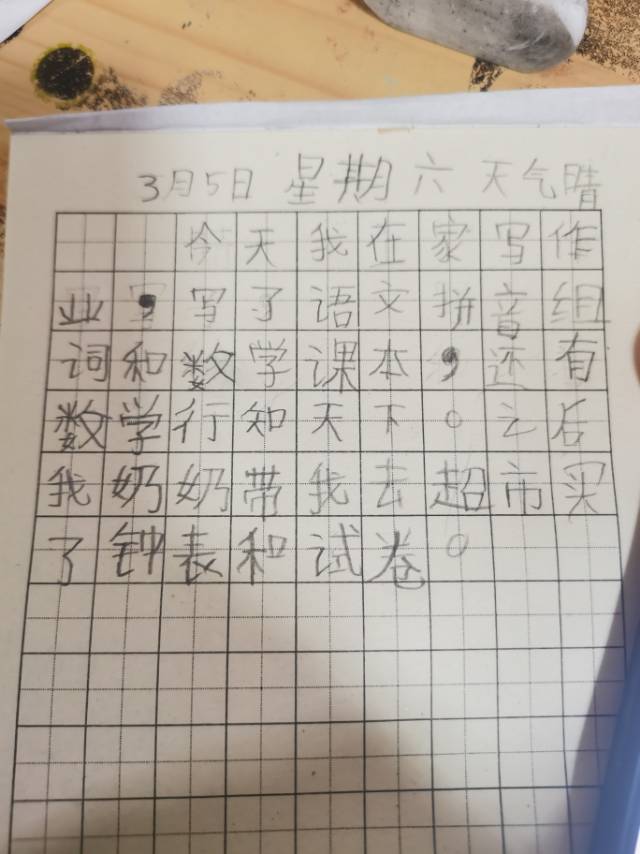 3月5日 星期六 天气晴
今天我在家写作
业，写了语文拼音组
词和数学课本，还有
数学行知天下。之后
我奶奶带我去超市买
了钟表和试卷。